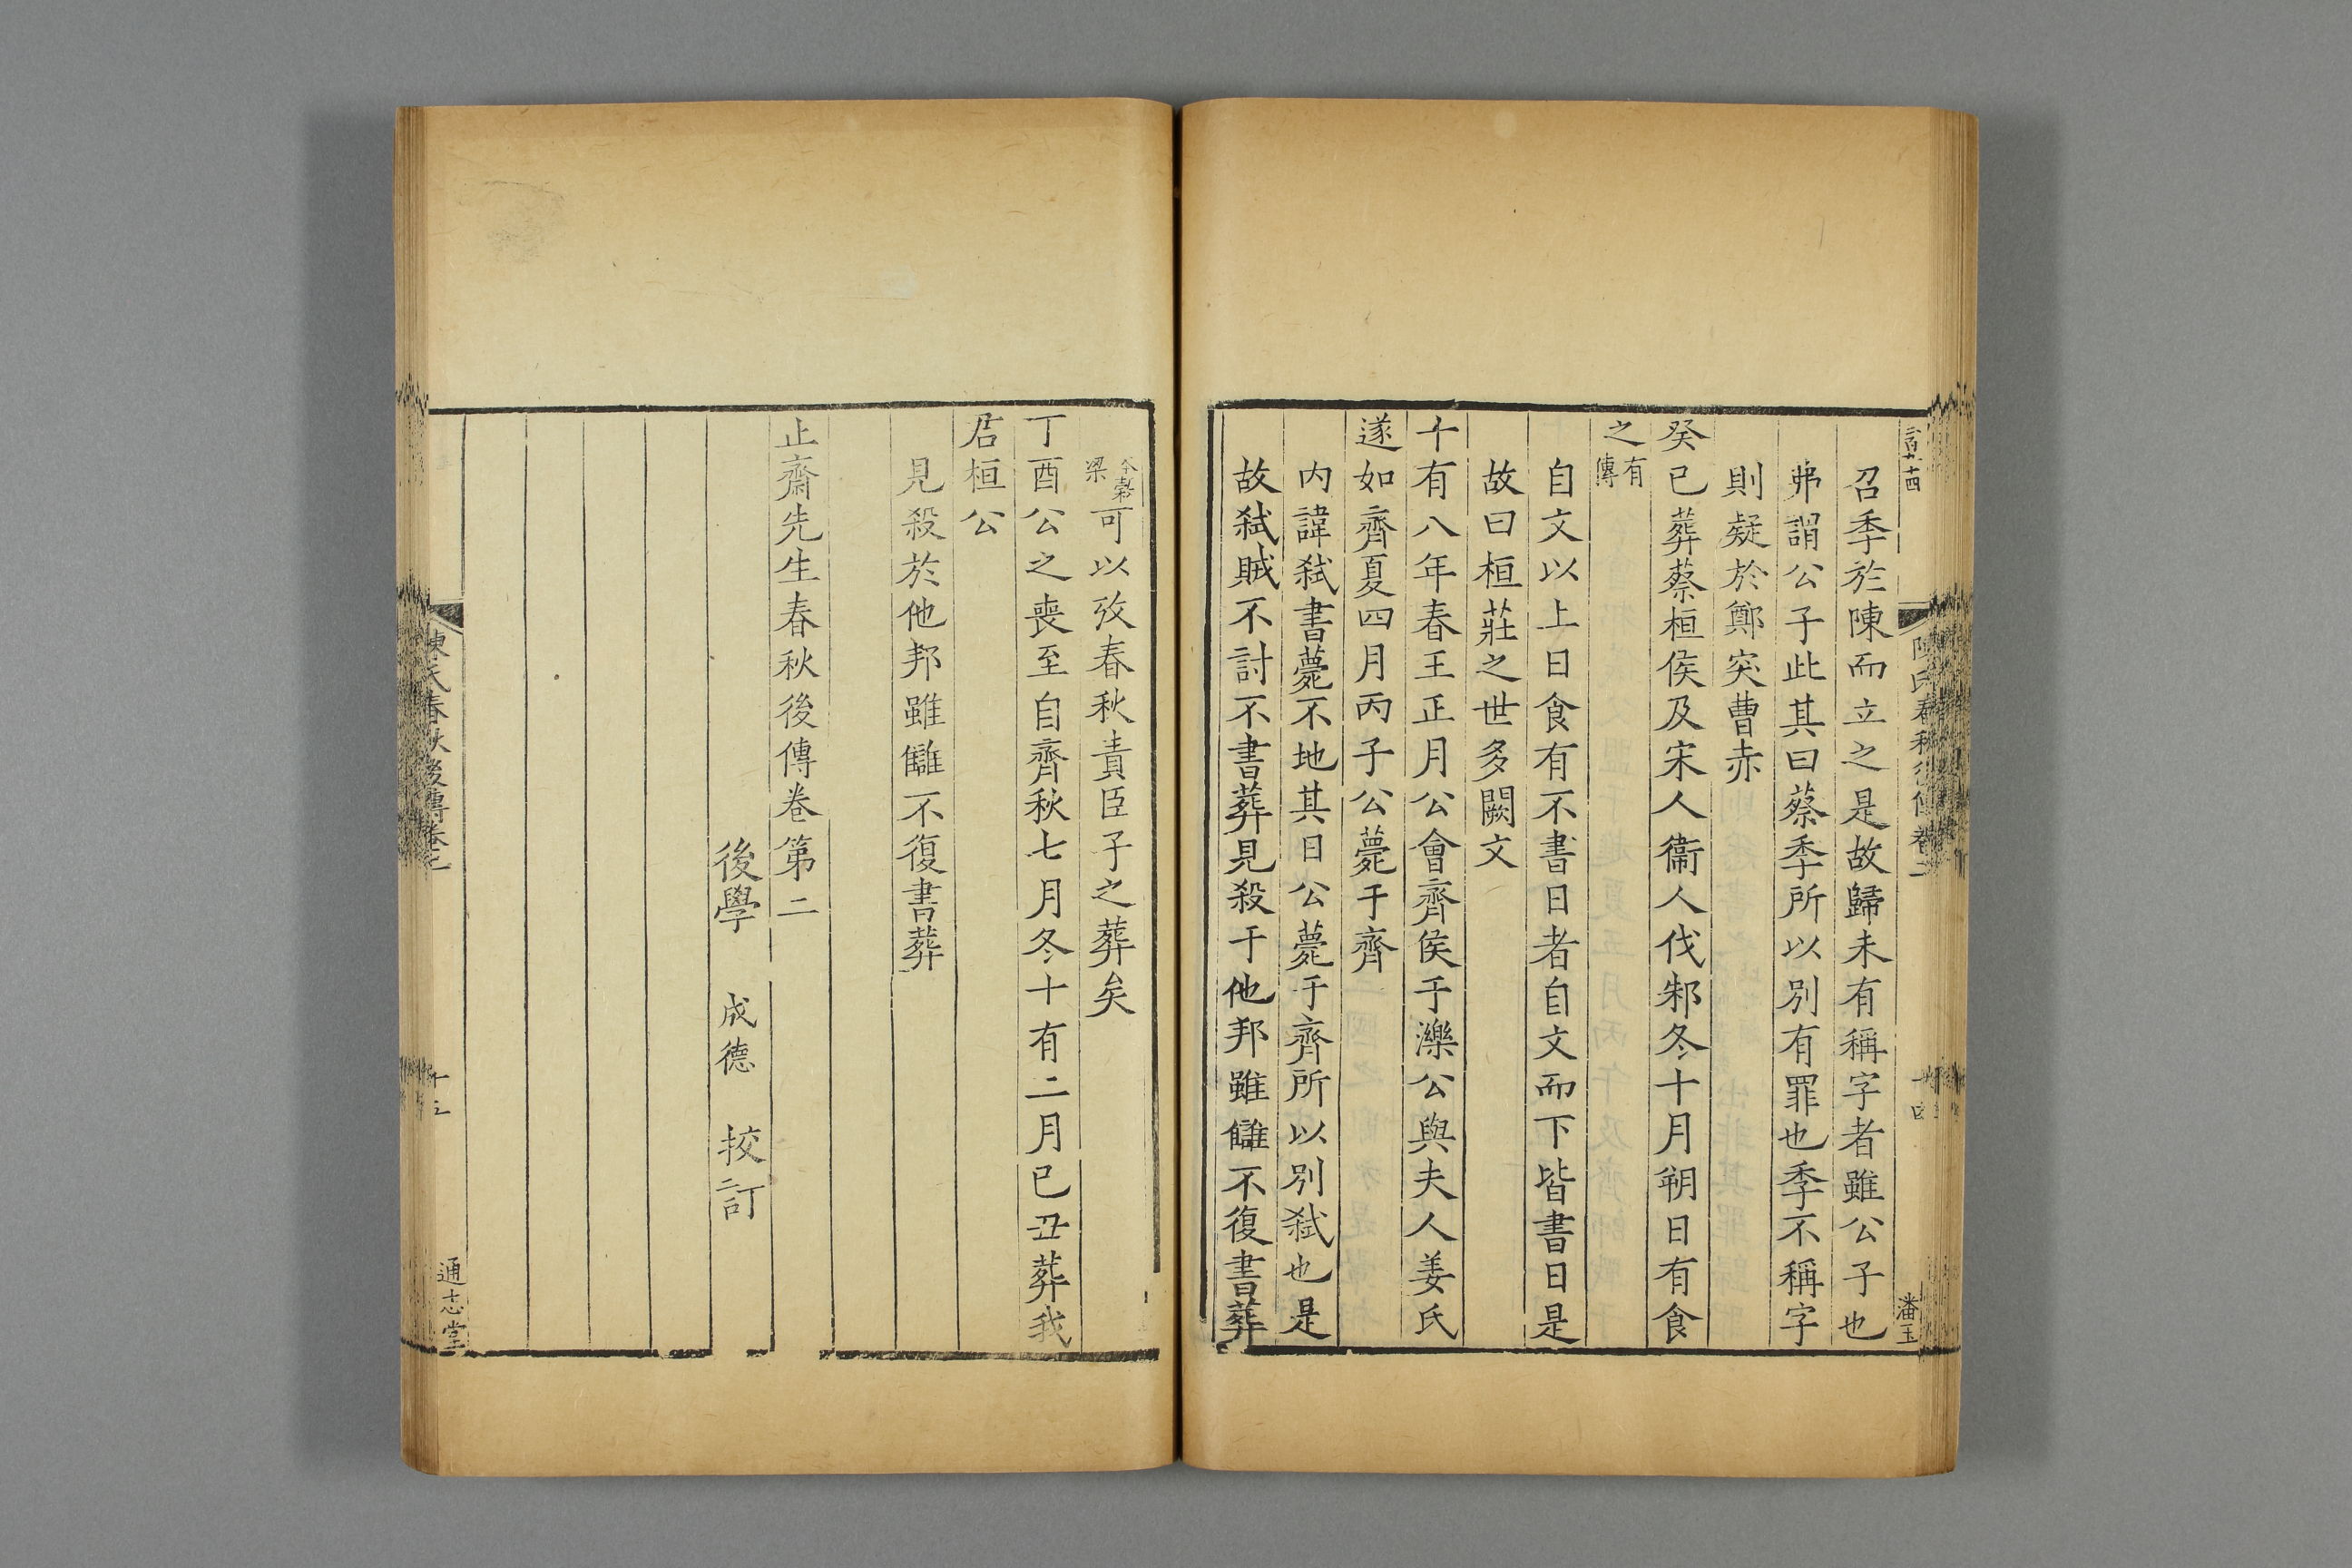 召季於陳而立之是故歸未有稱字者雖公子也
弗謂公子此其曰蔡季所以別有罪也季不稱字
則疑於鄭突曹赤
癸巳葬蔡桓侯及宋人衞人伐邾冬十月朔日有食
之有傳
自文以上日食有不書日者自文而下皆書日是
故曰桓莊之世多闕文
十有八年春王正月公會齊侯于濼公與夫人姜氏
遂如齊夏四月丙子公薨于齊
内諱弒書薨不地其日公薨于齊所以別弒也是
故弒賊不討不書葬見殺于他邦雖讎不復書葬
潘玉
穀梁可以攷春秋責臣子之葬矣
丁酉公之喪至自齊秋七月冬十有二月已丑葬我
君桓公
見殺於他邦雖讎不復書葬
止齋先生春秋後傳卷第二
後學 成德 挍訂
陳氏春秋後傳卷二
十五
通志堂